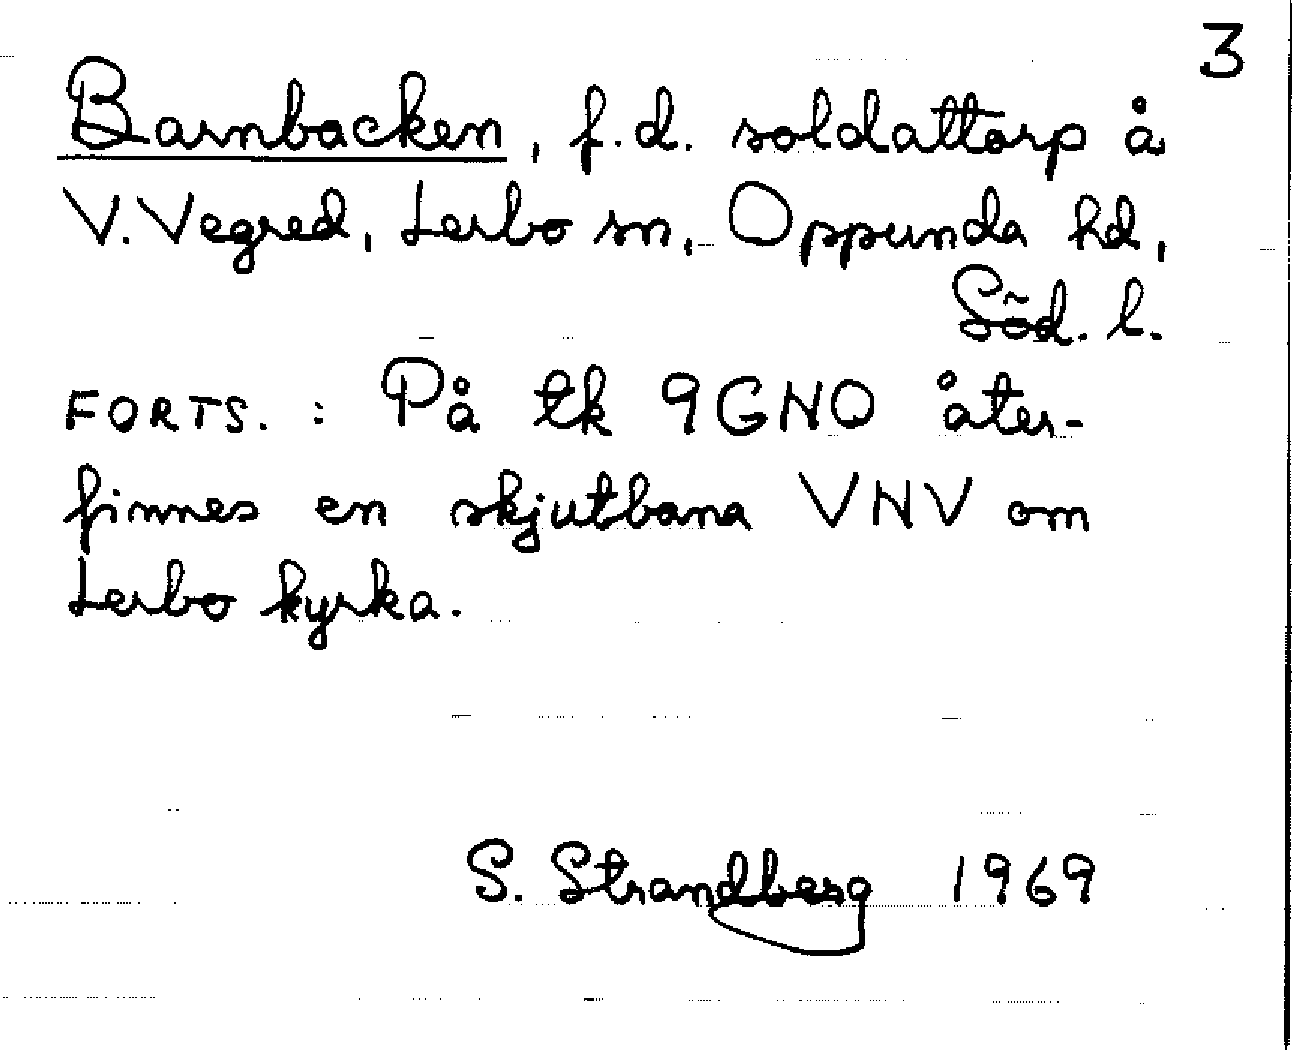 3
Barnbacken, f.d. soldattorp å
V. Vegred, Lerbo sn, Oppunda hd,
Söd. l.
FORTS. : På tk 9GNO åter-
finnes en skjutbana VNV om
Lerbo kyrka.
S. Strandberg 1969